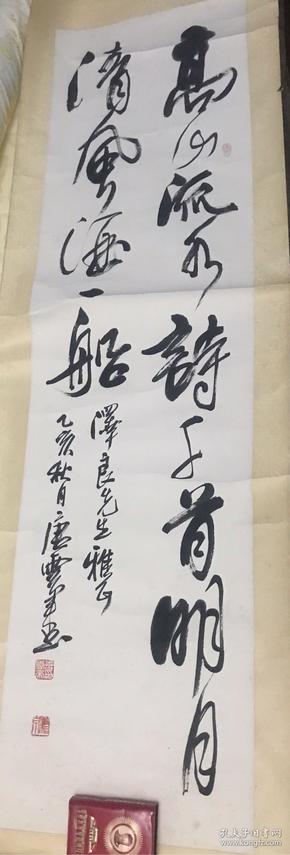 高山流水詩千首明月
清風酒一船
澤良先生雅正
乙亥秋月唐雲書
孔夫子旧书网
www.kongfz.com